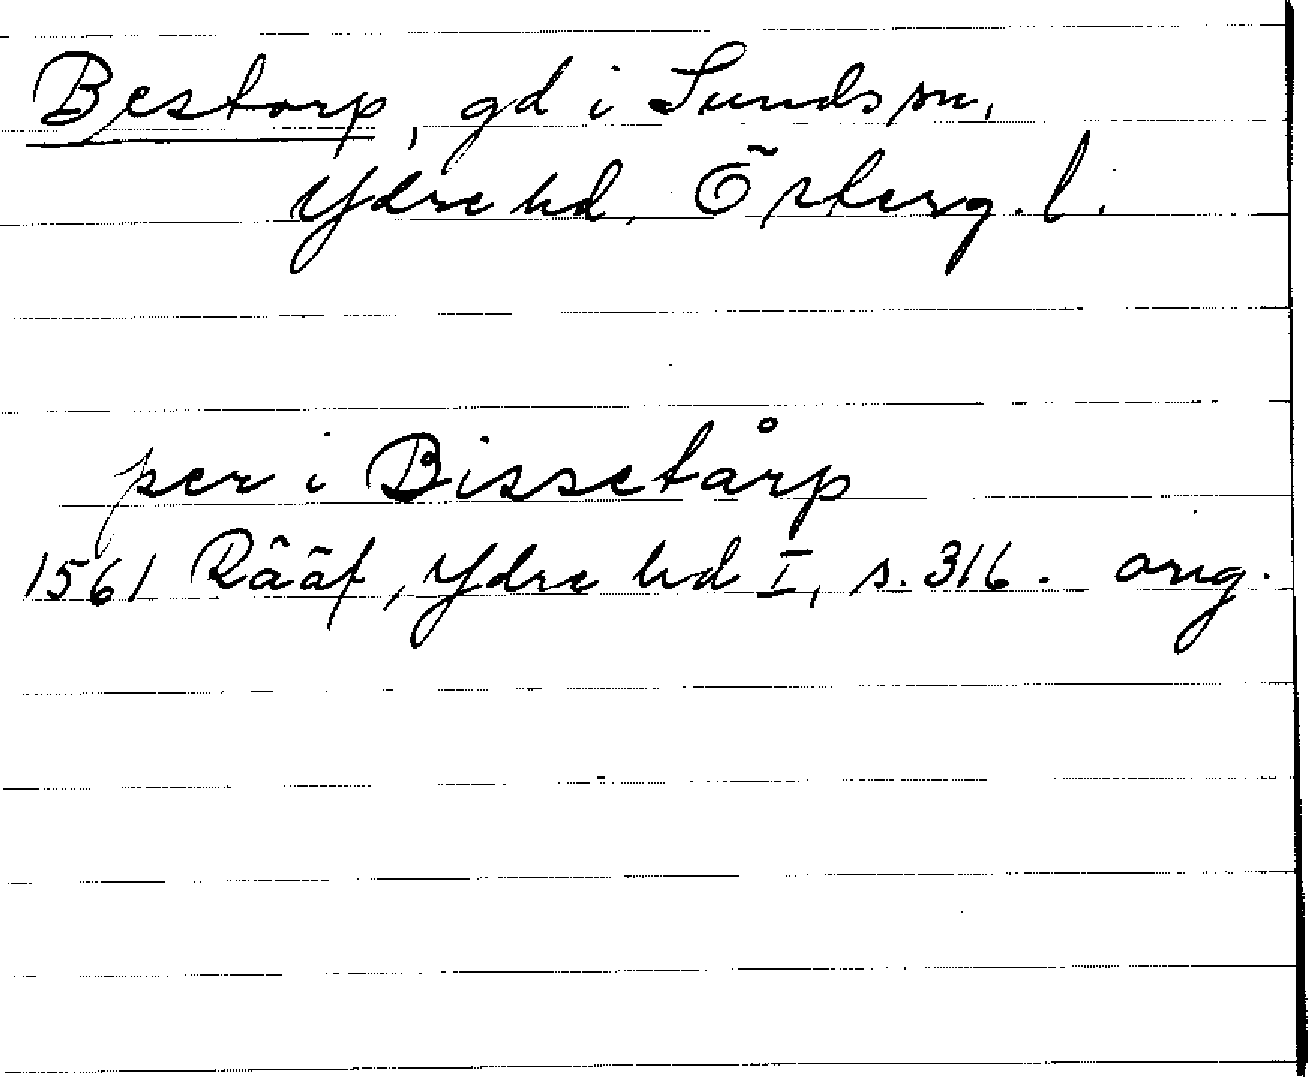 Bestorp, gd i Sunds sn,
Ydre hd, Österg. l.
per i Bissetårp
1561 Rääf, Ydre hd I, s. 316. orig.